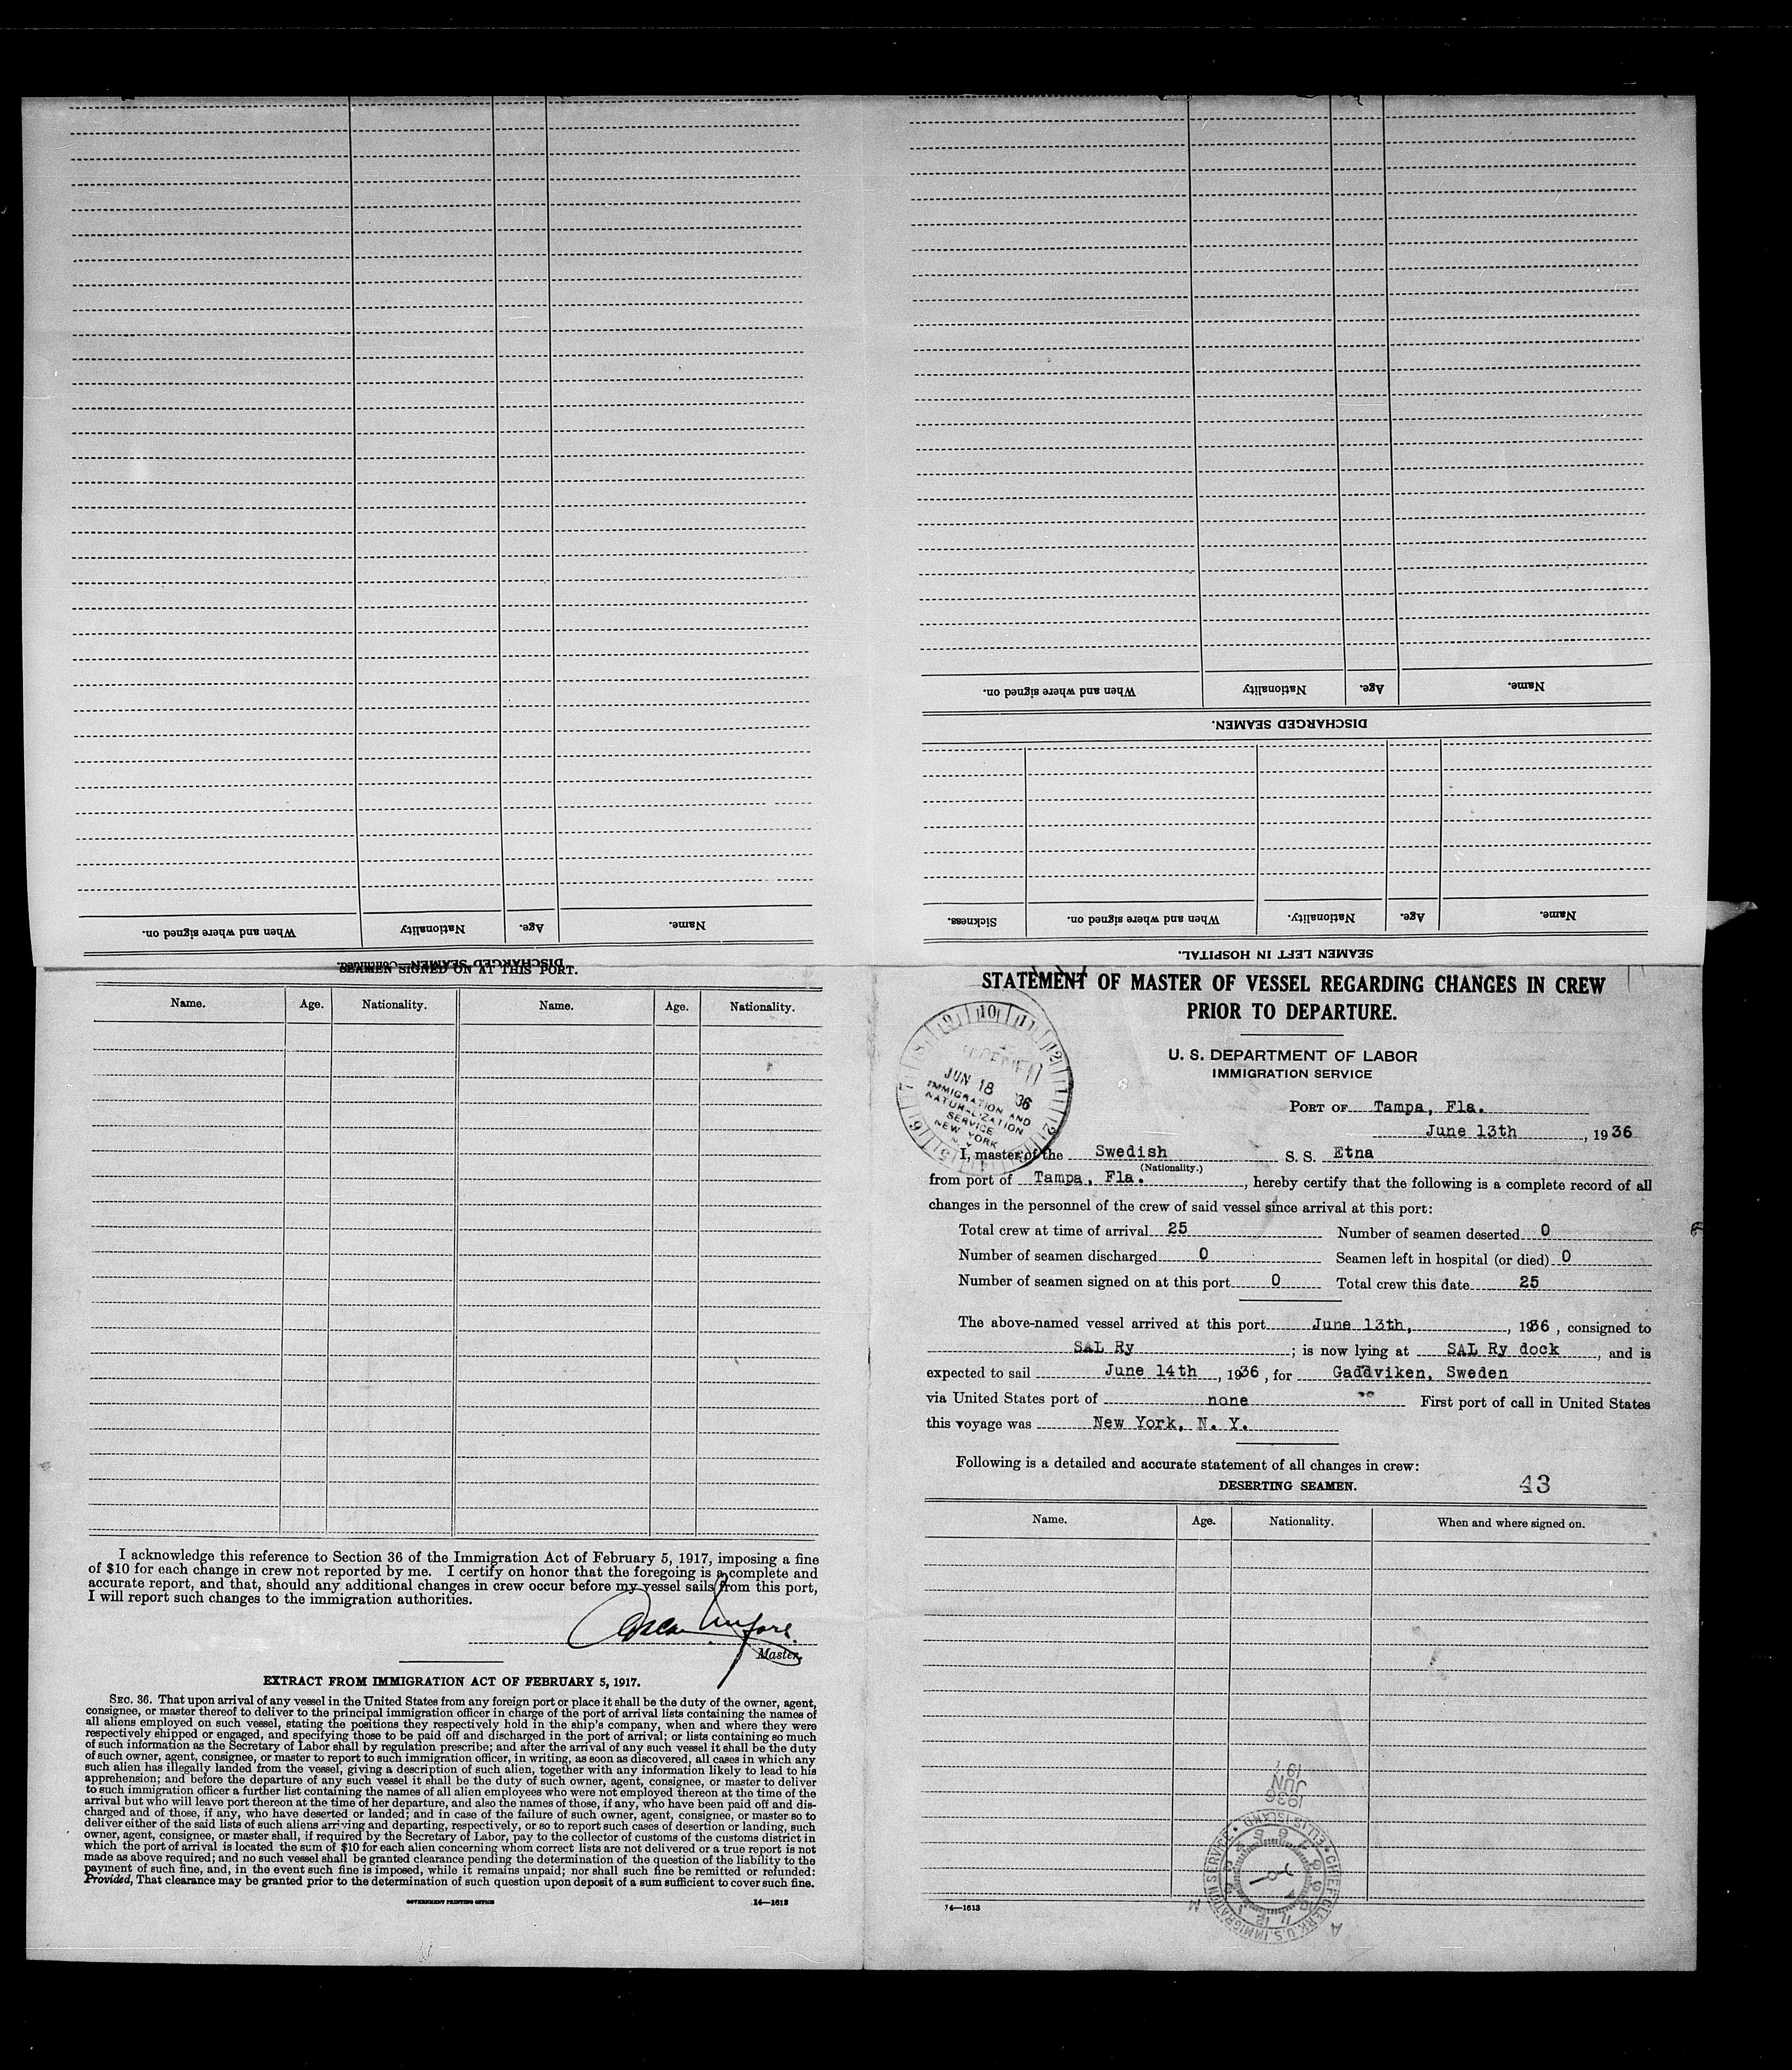 Name. Age. Nationality When and where signed on.
DISCHARGED SEAMEN—Continued.
Name. Age. Nationality When and where signed on.
DISCHARGED SEAMEN.
Name. Age. Nationality. When and where signed on. Sickness.
SEAMEN LEFT IN HOSPITAL.
SEAMEN SIGNED ON AT THIS PORT.
Name. Age. Nationality. Name. Age. Nationality.
I acknowledge this reference to Section 36 of the Immigration Act of February 5, 1917, imposing a fine
of $10 for each change in crew not reported by me. I certify on honor that the foregoing is a complete and
accurate report, and that, should any additional changes in crew occur before my vessel sails from this port,
I will report such changes to the immigration authorities.
Master.
EXTRACT FROM IMMIGRATION ACT OF FEBRUARY 5, 1917.
SEC. 36. That upon arrival of any vessel in the United States from any foreign port or place it shall be the duty of the owner, agent,
consignee, or master thereof to deliver to the principal immigration officer in charge of the port of arrival lists containing the names of
all aliens employed on such vessel, stating the positions they respectively hold in the ship's company, when and where they were
respectively shipped or engaged, and specifying those to be paid off and discharged in the port of arrival; or lists containing so much
of such information as the Secretary of Labor shall by regulation prescribe; and after the arrival of any such vessel it shall be the duty
of such owner, agent, consignee, or master to report to such immigration officer, in writing, as soon as discovered, all cases in which any
such alien has illegally landed from the vessel, giving a description of such alien, together with any information likely to lead to his
apprehension; and before the departure of any such vessel it shall be the duty of such owner, agent, consignee, or master to deliver
to such immigration officer a further list containing the names of all alien employees who were not employed thereon at the time of the
arrival but who will leave port thereon at the time of her departure, and also the names of those, if any, who have been paid off and dis-
charged and of those, if any, who have deserted or landed; and in case of the failure of such owner, agent, consignee, or master so to
deliver either of the said lists of such aliens arriving and departing, respectively, or so to report such cases of desertion or landing, such
owner, agent, consignee, or master shall, if required by the Secretary of Labor, pay to the collector of customs of the customs district in
which the port of arrival is located the sum of $10 for each alien concerning whom correct lists are not delivered or a true report is not
made as above required; and no such vessel shall be granted clearance pending the determination of the question of the liability to the
payment of such fine, and, in the event such fine is imposed, while it remains unpaid; nor shall such fine be remitted or refunded:
Provided, That clearance may be granted prior to the determination of such question upon deposit of a sum sufficient to cover such fine.
GOVERNMENT PRINTING OFFICE 14—1613
STATEMENT OF MASTER OF VESSEL REGARDING CHANGES IN CREW
PRIOR TO DEPARTURE.
U. S. DEPARTMENT OF LABOR
IMMIGRATION SERVICE
JUN 18 36
IMMIGRATION AND
NATURALIZATION
SERVICE
NEW YORK
N. Y.
PORT OF Tampa, Fla.
June 13th, 1936
I, master of the Swedish S. S. Etna
(Nationality.)
from port of Tampa, Fla., hereby certify that the following is a complete record of all
changes in the personnel of the crew of said vessel since arrival at this port:
Total crew at time of arrival 25 Number of seamen deserted 0
Number of seamen discharged 0 Seamen left in hospital (or died) 0
Number of seamen signed on at this port 0 Total crew this date 25
The above-named vessel arrived at this port June 13th, , 1936, consigned to
SAL Ry ; is now lying at SAL Ry dock, and is
expected to sail June 14th, 1936, for Gaddviken, Sweden
via United States port of none First port of call in United States
this voyage was New York, N. Y.
Following is a detailed and accurate statement of all changes in crew:
DESERTING SEAMEN. 43
Name. Age. Nationality. When and where signed on.
1936
JUN
CHIEF CLERK, U.S. IMMIGRATION SERVICE • ELLIS ISLAND
14—1613